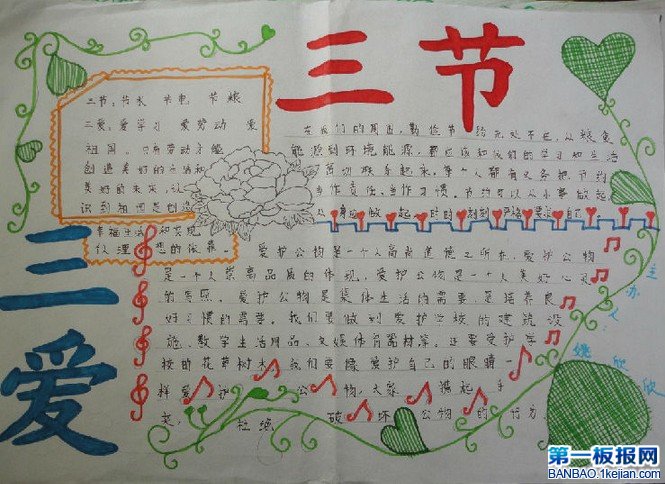 三节
三节：节水 节电 节粮
三爱：爱学习 爱劳动 爱
祖国。只有劳动才能
创造美好的生活和
美好的未来，认
识到祖国是创造
幸福生活和实现
理想的
在我们的周围，勤俭节约无处不在，从粮食
能源到环境能源，都应该和我们的学习和生活
密切联系起来，每个人都有义务把节约
当作责任，当作习惯。节约可以从小事做起
从身边做起，时时刻刻严格要求自己
三爱
爱护公物是一个人高尚道德之所在，爱护公物
是一个人崇高品质的体现，爱护公物是一个人美好心灵
的写照。爱护公物是集体生活的需要，是培养良
好习惯的需要。我们要做到爱护学校的建筑设
施、教学生活用品、文娱体育器材等。还要爱护学
校的花草树木。我们要像爱护自己的眼睛一
样爱护公物，大家携起手
来，杜绝破坏公物的行为
主办人：
姚欣欣
第一板报网
BANBAO.1kejian.com